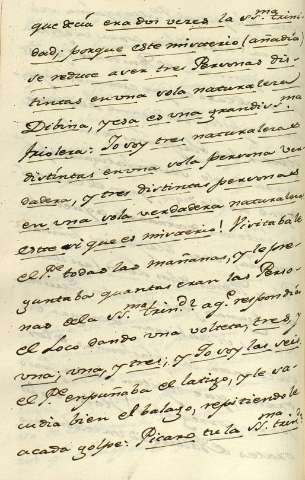 que decia era dos veces la SS.ma trin-
dad; porque este misterio (añadia)
se reduce a ver tres Personas dis-
tintas en una sola naturaleza
Dibina, y esa es una grandis.ma
friolera: Yo soy tres naturalezas
distintas en una sola persona ver
dadera, y tres distintas personas
en una sola verdadera naturaleza
este si que es misterio! Visitabale
el P.e todas las mañanas, y le pre
guntaba quantas eran las Perso-
nas de la SS.ma trin.d a q.e respondia
el Loco dando una volteta, tres, y
una; una, y tres; y Yo soy las seis.
el P.e empuñaba el latigo, y le sa-
cudia bien el balago, repitiendole
a cada golpe: Picaro tu la SS.ma trin.d